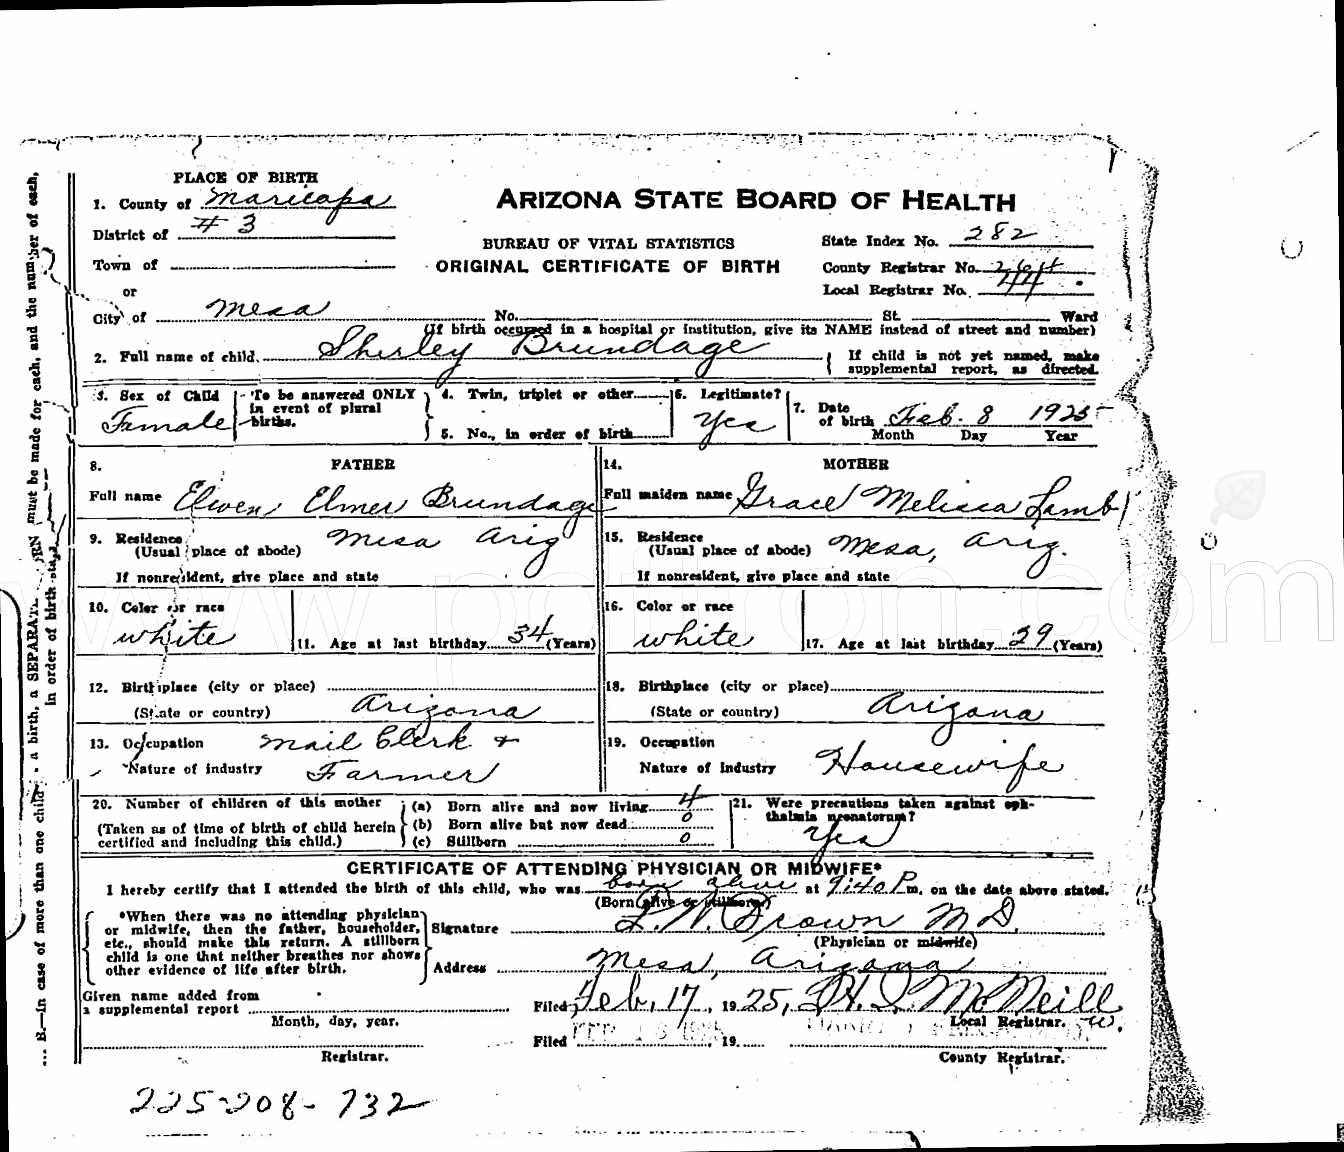 PLACE OF BIRTH
1. County of Maricopa
District of # 3
Town of
or
City of Mesa No. St. Ward
ARIZONA STATE BOARD OF HEALTH
BUREAU OF VITAL STATISTICS
ORIGINAL CERTIFICATE OF BIRTH
State Index No. 282
County Registrar No.
Local Registrar No. 44
(If birth occurred in a hospital or institution, give its NAME instead of street and number)
2. Full name of child Shirley Brundage
If child is not yet named, make
supplemental report, as directed.
3. Sex of Child
Female
To be answered ONLY
in event of plural
births.
4. Twin, triplet or other
5. No., in order of birth
6. Legitimate?
Yes
7. Date
of birth Feb. 8 1925
Month Day Year
8. FATHER
Full name Elwen Elmer Brundage
9. Residence Mesa Ariz
(Usual place of abode)
If nonresident, give place and state
10. Color or race
white
11. Age at last birthday 34 (Years)
12. Birthplace (city or place)
(State or country) Arizona
13. Occupation Mail Clerk &
Nature of industry Farmer
14. MOTHER
Full maiden name Grace Melissa Lamb
15. Residence Mesa, Ariz.
(Usual place of abode)
If nonresident, give place and state
16. Color or race
white
17. Age at last birthday 29 (Years)
18. Birthplace (city or place)
(State or country) Arizona
19. Occupation
Nature of Industry Housewife
20. Number of children of this mother
(Taken as of time of birth of child herein
certified and including this child.)
(a) Born alive and now living 4
(b) Born alive but now dead 0
(c) Stillborn 0
21. Were precautions taken against oph-
thalmia neonatorum?
Yes
CERTIFICATE OF ATTENDING PHYSICIAN OR MIDWIFE*
I hereby certify that I attended the birth of this child, who was born alive at 9:40 P m. on the date above stated.
(Born alive or stillborn)
*When there was no attending physician
or midwife, then the father, householder,
etc., should make this return. A stillborn
child is one that neither breathes nor shows
other evidence of life after birth.
Signature L. W. Brown M D.
(Physician or midwife)
Address Mesa, Arizona
Given name added from
a supplemental report
Month, day, year.
Registrar.
Filed Feb. 17, 1925, McNeill
Local Registrar.
Filed 19
County Registrar.
225-208-732
B.—In case of more than one child a birth, a SEPARATE RETURN must be made for each, and the number of each,
in order of birth stated
www.portron.com